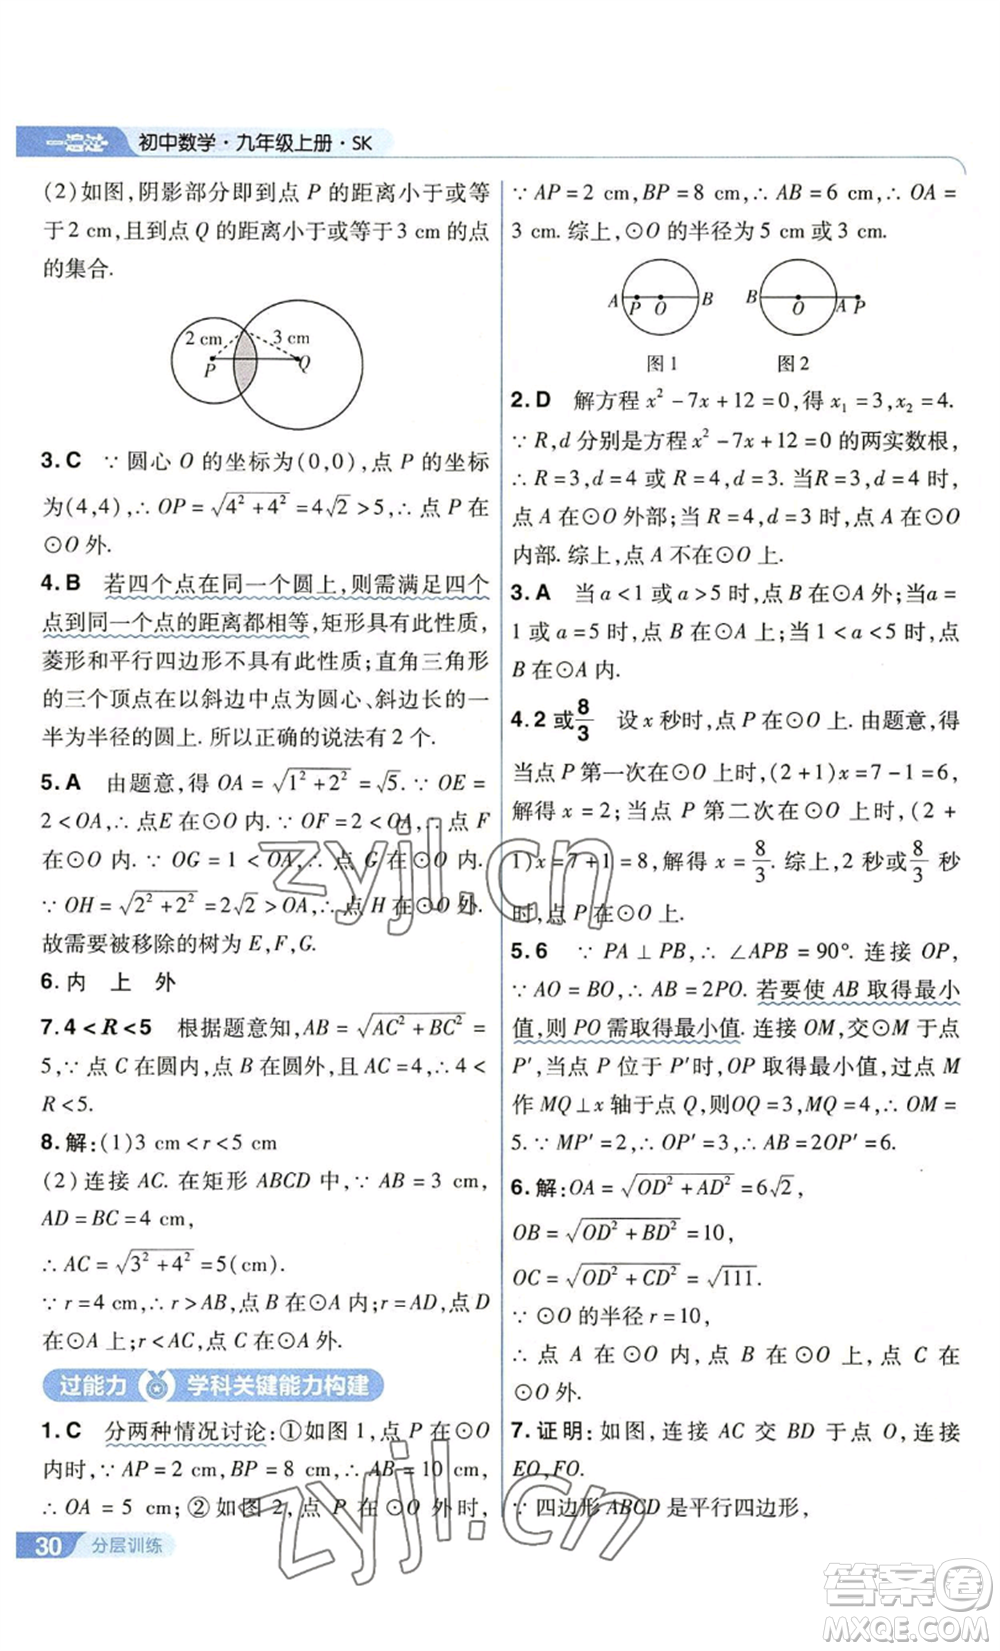 一遍过 初中数学·九年级上册·SK
(2)如图,阴影部分即到点 P 的距离小于或等
于2 cm,且到点 Q 的距离小于或等于3 cm 的点
的集合.
2 cm 3 cm
P Q
3.C ∵ 圆心 O 的坐标为(0,0),点 P 的坐标
为(4,4),∴ OP=√(4²+4²)=4√2>5,∴ 点 P 在
⊙O 外.
4.B 若四个点在同一个圆上,则需满足四个
点到同一个点的距离都相等,矩形具有此性质,
菱形和平行四边形不具有此性质;直角三角形
的三个顶点在以斜边中点为圆心、斜边长的一
半为半径的圆上. 所以正确的说法有 2 个.
5.A 由题意,得 OA=√(1²+2²)=√5. ∵ OE=
2<OA,∴ 点E 在⊙O 内. ∵ OF=2<OA,∴ 点 F
在⊙O 内. ∵ OG=1<OA,∴ 点 G 在⊙O 内.
∵ OH=√(2²+2²)=2√2>OA,∴ 点 H 在⊙O 外.
故需要被移除的树为 E,F,G.
6.内 上 外
7.4<R<5 根据题意知,AB=√(AC²+BC²)=
5,∵ 点 C 在圆内,点 B 在圆外,∴ 4<
R<5.
8.解:(1)3 cm<r<5 cm
(2)连接 AC. 在矩形 ABCD 中,∵ AB=3 cm,
AD=BC=4 cm,
∴ AC=√(3²+4²)=5(cm).
∵ r=4 cm,∴ r>AB,点 B 在⊙A 内;r=AD,点 D
在⊙A 上;r<AC,点 C 在⊙A 外.
过能力 学科关键能力构建
1.C 分两种情况讨论:①如图 1,点 P 在⊙O
内时,∵ AP=2 cm,BP=8 cm,∴ AB=10 cm,
∴ OA=5 cm;②如图 2,点 P 在⊙O 外时,
∵ AP=2 cm,BP=8 cm,∴ AB=6 cm,∴ OA=
3 cm. 综上,⊙O 的半径为 5 cm 或 3 cm.
A P O B B O A P
图 1 图 2
2.D 解方程 x²-7x+12=0,得 x₁=3,x₂=4.
∵ R,d 分别是方程 x²-7x+12=0 的两实数根,
∴ R=3,d=4 或 R=4,d=3. 当 R=3,d=4 时,
点 A 在⊙O 外部;当 R=4,d=3 时,点 A 在⊙O
内部. 综上,点 A 不在⊙O 上.
3.A 当 a<1 或 a>5 时,点 B 在⊙A 外;当a=
1 或 a=5 时,点 B 在⊙A 上;当 1<a<5 时,点
B 在⊙A 内.
4.2 或8/3 设 x 秒时,点 P 在⊙O 上. 由题意,得
当点 P 第一次在⊙O 上时,(2+1)x=7-1=6,
解得 x=2;当点 P 第二次在⊙O 上时,(2+
1)x=7+1=8,解得 x=8/3. 综上,2 秒或8/3 秒
时,点 P 在⊙O 上.
5.6 ∵ PA⊥PB,∴ ∠APB=90°. 连接 OP,
∵ AO=BO,∴ AB=2PO. 若要使 AB 取得最小
值,则 PO 需取得最小值. 连接 OM,交⊙M 于点
P′,当点 P 位于 P′时,OP 取得最小值,过点 M
作 MQ⊥x 轴于点 Q,则OQ=3,MQ=4,∴ OM=
5. ∵ MP′=2,∴ OP′=3,∴ AB=2OP′=6.
6.解:OA=√(OD²+AD²)=6√2,
OB=√(OD²+BD²)=10,
OC=√(OD²+CD²)=√111.
∵ ⊙O 的半径 r=10,
∴ 点 A 在⊙O 内,点 B 在⊙O 上,点 C 在
⊙O 外.
7.证明:如图,连接 AC 交 BD 于点 O,连接
EO,FO.
∵ 四边形 ABCD 是平行四边形,
30 分层训练
zyjl.cn
zyjl.cn
答案圈
MXQE.COM